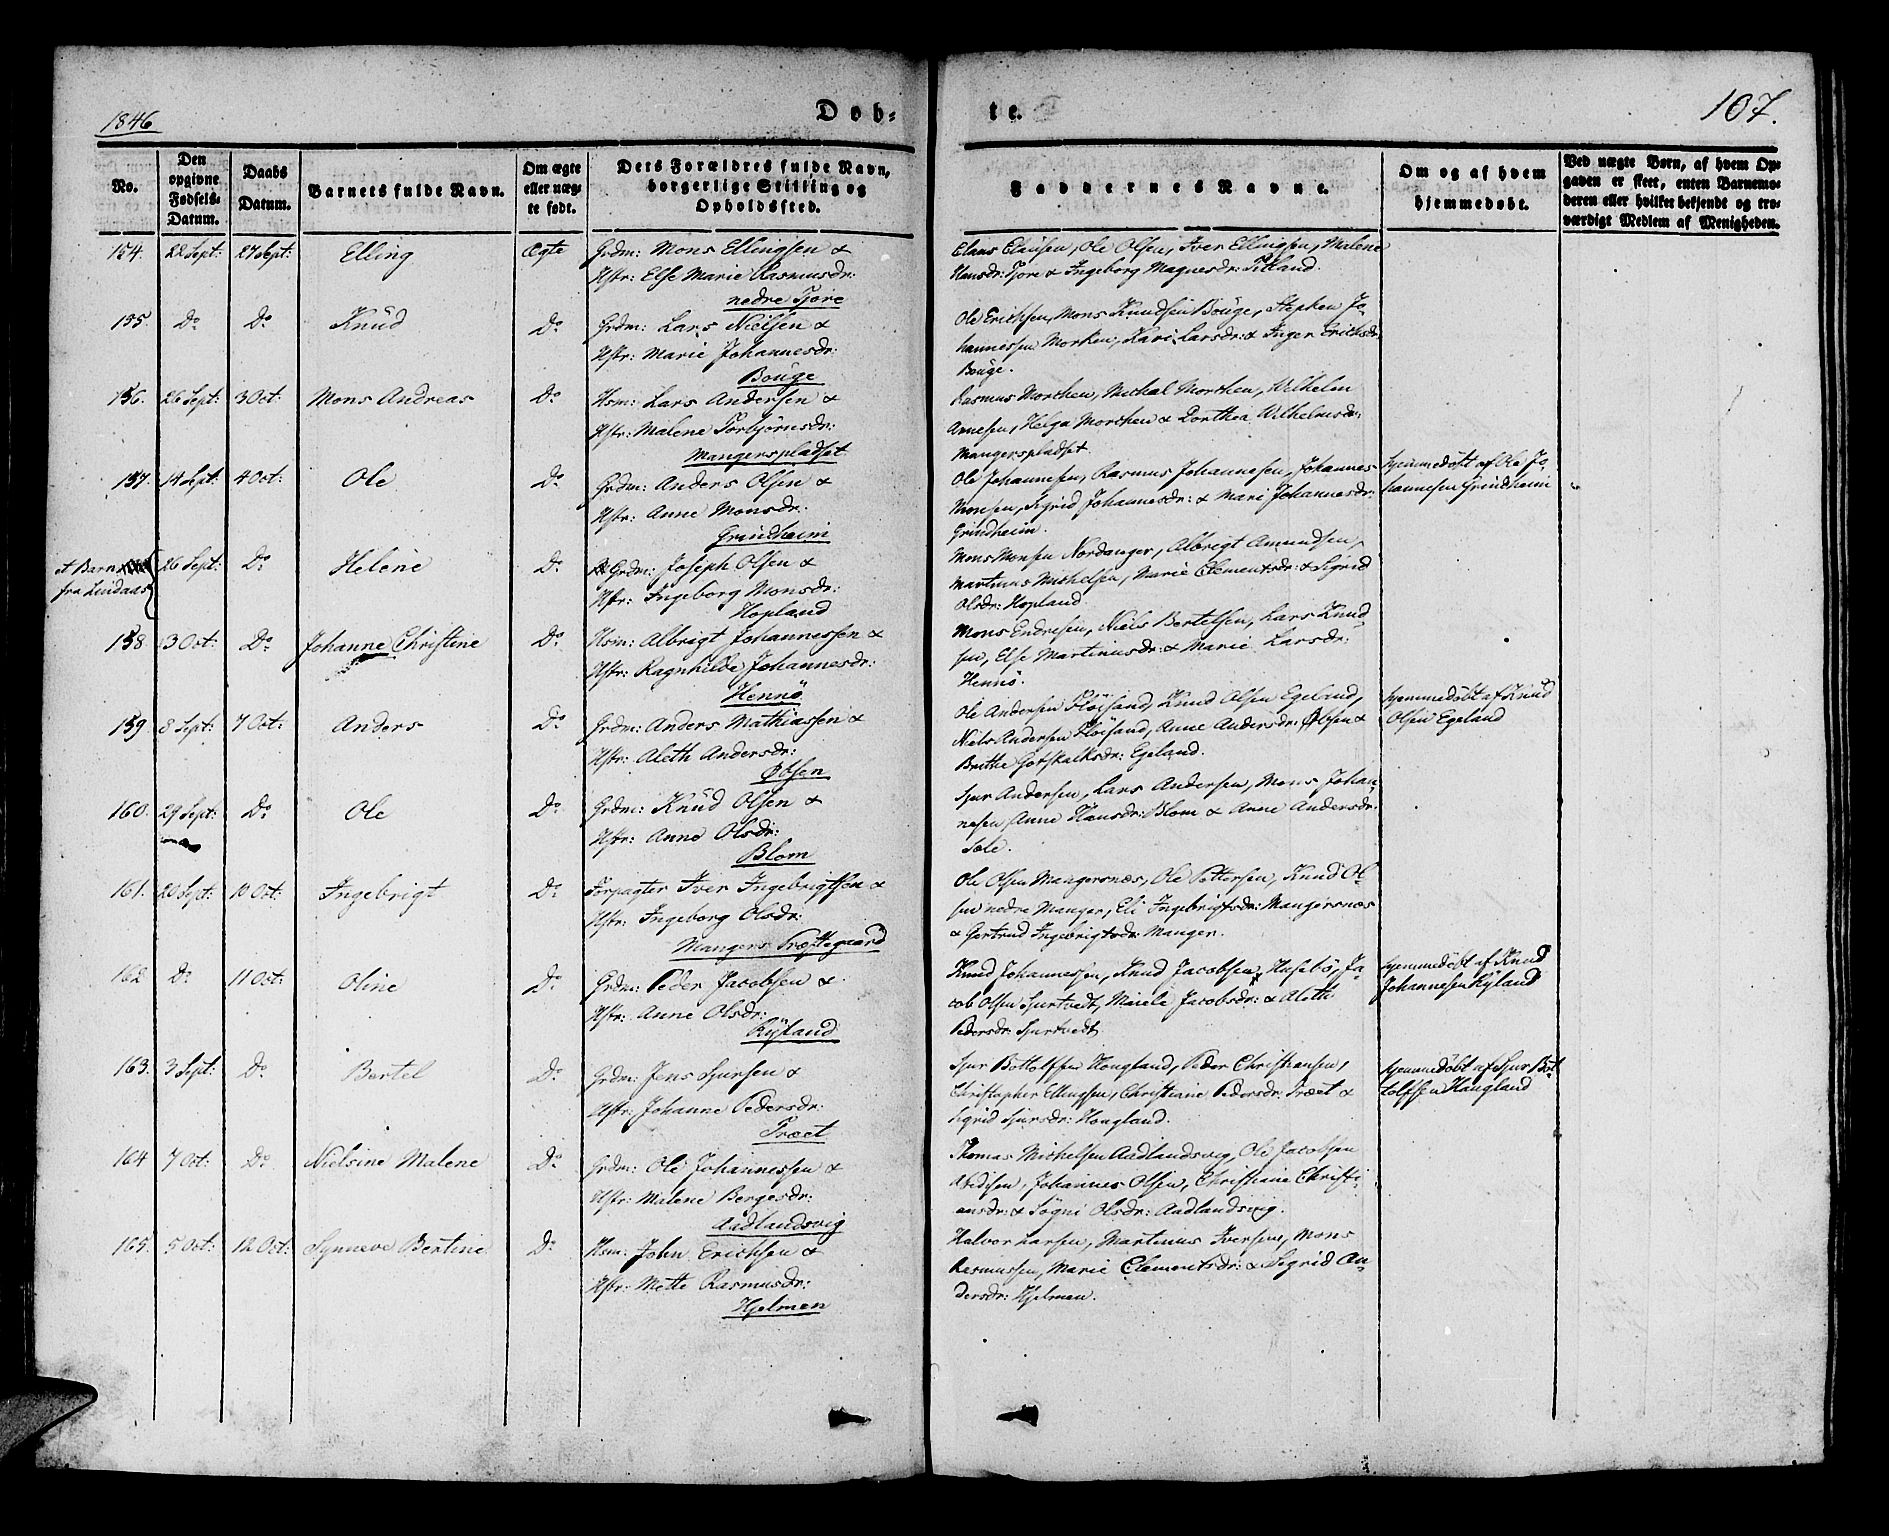 1846
Døb-
te.
107.
No.
Den opgivne Fødsels-Datum.
Daabs Datum.
Barnets fulde Navn.
Om ægte eller uægte født.
Dets Forældres fulde Navn, borgerlige Stilling og Opholdssted.
Faddernes Navne.
Om og af hvem hjemmedøbt.
Ved uægte Børn, af hvem Opgaven er skeet, enten Barnemoderen eller hvilket bekjendt og troværdigt Medlem af Menigheden.
154. 22 Sept: 27 Sept: Elling Ægte Grdm: Mons Ellingsen &
Hstr: Else Marie Rasmusdr:
nedre Tjore
Claus Clausen, Ole Olsen, Iver Ellingsen, Malene
Hansdr: Tjore & Ingeborg Magnesdr: Tilland.
155. Do Do Knud Do Grdm: Lars Nielsen &
Hstr: Marie Johannesdr:
Bouge
Ole Erichsen, Mons Knudsen Bouge, Stephen Jo-
hannessen Morken, Kari Larsdr: & Inger Erichsdr:
Bouge.
156. 26 Sept: 3 Oct: Mons Andreas Do Hsm: Lars Andersen &
Hstr: Malene Torbjørnsdr:
Mangerspladset
Rasmus Morchen, Michal Morchen, Wilhelm
Annesen, Helga Morchen & Dorthea Wilhelmsdr:
Mangerspladset.
157. 14 Sept: 4 Oct: Ole Do Grdm: Anders Olsen &
Hstr: Anne Monsdr:
Grindheim
Ole Johannesen, Rasmus Johannesen, Johannes
Monsen, Sigrid Johannesdr: & Mari Johannesdr:
Grindheim.
hjemmedøbt af Ole Jo-
hannesen Grindheim
et Barn
fra Lindaas
26 Sept: Do Helene Do Grdm: Joseph Olsen &
Hstr: Ingeborg Monsdr:
Hopland
Mons Monsen Nordanger, Albrigt Amundsen,
Martinus Michelsen, Marie Clementsdr: & Sigrid
Olsdr: Hopland.
158. 3 Oct: Do Johanne Christine Do Hsm: Albrigt Johannessen &
Hstr: Ragnhilde Johannesdr:
Hennö
Mons Endresen, Niels Bertelsen, Lars Knud-
sen, Else Martinusdr: & Marie Larsdr:
Hennö.
159. 8 Sept: 7 Oct: Anders Do Grdm: Anders Mathiassen &
Hstr: Aleth Andersdr:
Øbsen
Ole Andersen Flöisand, Knud Olsen Egeland,
Niels Andersen Flöisand, Anne Andersdr: Øbsen &
Brithe Gotskalksdr: Egeland.
hjemmedøbt af Knud
Olsen Egeland
160. 29 Sept: Do Ole Do Grdm: Knud Olsen &
Hstr: Anne Olsdr:
Blom
Sjur Andersen, Lars Andersen, Mons Johan-
nesen, Anne Hansdr: Blom & Anne Andersdr:
Sæle.
161. 20 Sept: 10 Oct: Ingebrigt Do Forpagter Iver Ingebrigtsen &
Hstr: Ingeborg Olsdr:
Mangers Præstegaard
Ole Olsen Mangersnæs, Ole Pettersen, Knud Ol-
sen nedre Manger, Eli Ingebrigtsdr: Mangersnæs
& Gertrud Ingebrigtsdr: Manger.
162 Do 11 Oct: Oline Do Grdm: Peder Jacobsen &
Hstr: Anne Olsdr:
Ryland
Knud Johannessen, Knud Jacobsen, Husebö, Ja-
cob Olsen Spurtvedt, Maiele Jacobsdr: & Aleth
Pedersdr: Spurtvedt
hjemmedøbt af Knud
Johannesen Ryland
163. 3 Sept: Do Bertel Do Grdm: Jens Sjursen &
Hstr: Johanne Pedersdr:
Træet
Sjur Bottolfsen Hougland, Peder Christiansen,
Christopher Ellingsen, Christiane Pedersdr: Træet &
Sigrid Sjursdr: Hougland.
hjemmedøbt af Sjur Bot-
tolfsen Hougland
164 7 Oct: Do Nielsine Malene Do Grdm: Ole Johannessen &
Hstr: Malene Bergesdr:
Aadlandsvig
Thomas Michelsen Aadlandsvig, Ole Jacobsen
Johannes Olsen, Christiane Christi-
ansdr: & Sögni Olsdr: Aadlandsvig.
165. 5 Oct: 12 Oct: Synneve Bertine Do Hsm: John Erichsen &
Hstr: Mette Rasmusdr:
Hjelmen
Halvor Larsen, Martinus Iversen, Mons
Rasmussen, Marie Clementsdr: & Sigrid An-
dersdr: Hjelmen.